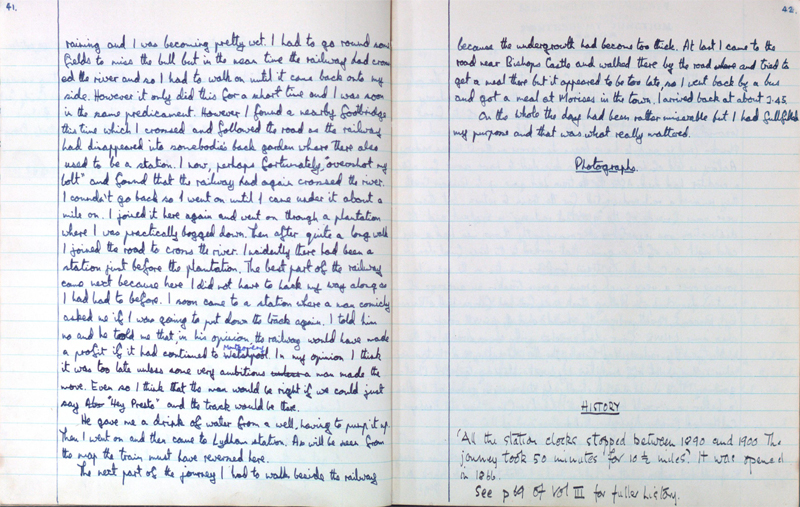 41.
raining and I was becoming pretty wet. I had to go round some
fields to miss the bull but in the mean time the railway had cross
ed the river and so I had to walk on until it came back onto my
side. However it only did this for a short time and I was soon
in the same predicament. However I found a nearby footbridge
this time which I crossed and followed the road as the railway
had disappeared into somebodies back garden where there also
used to be a station. I now, perhaps fortunately, "overshot my
bolt" and found that the railway had again crossed the river.
I couldn't go back so I went on until I came under it about a
mile on. I joined it here again and went on through a plantation
where I was practically bogged down. Then after quite a long walk
I joined the road to cross the river. Incidently there had been a
station just before the plantation. The best part of the railway
came next because here I did not have to hack my way along as
I had had to before. I soon came to a station where a man comicly
asked me if I was going to put down the track again. I told him
no and he told me that, in his opinion, the railway would have made
a profit if it had continued to Montgomery. In my opinion I think
it was too late unless some very ambitious man made the
move. Even so I think that the man would be right if we could just
say "Hey Presto" and the track would be there.
He gave me a drink of water from a well, having to pump it up.
Then I went on and then came to Lydham station. As will be seen from
the map the train must have reversed here.
The next part of the journey I had to walk beside the railway
42.
because the undergrowth had become too thick. At last I came to the
road near Bishops Castle and walked there by the road and tried to
get a meal there but it appeared to be too late, so I went back by a bus
and got a meal at Morises in the town. I arrived back at about 3.45.
On the whole the day had been rather miserable but I had fullfilled
my purpose and that was what really mattered.
Photographs.
HISTORY
'All the station clocks stopped between 1890 and 1900 The
journey took 50 minutes for 10½ miles'. It was opened
in 1866.
See p 69 of Vol III for fuller history.